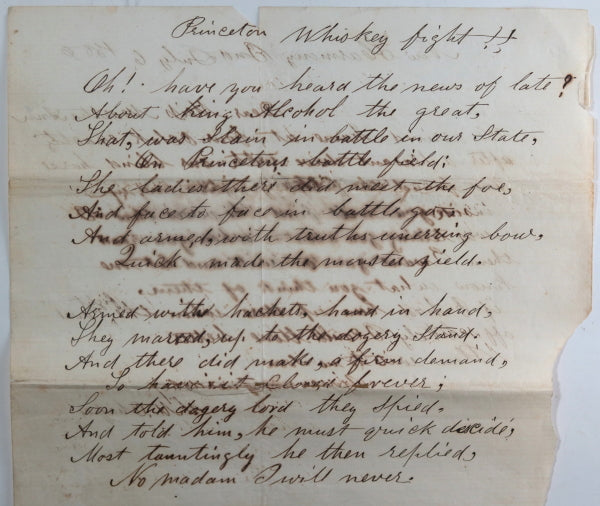 Princeton Whiskey fight !!
Oh! have you heard the news of late?
About King Alcohol the great,
That, was Slain in battle in our State,
On Princetons battle field:
The ladies there did meet the foe,
And face to face in battle go.
And armed, with truths unerring bow,
Quick made the monster yield.
Armed with hachets, hand in hand,
They marced, up to the dogery Stand.
And there did make, a firm demand,
To have it Closed forever;
Soon the dogery lord they spied.
And told him, he must quick decide,
Most tauntingly he then replied,
No madam I will never.